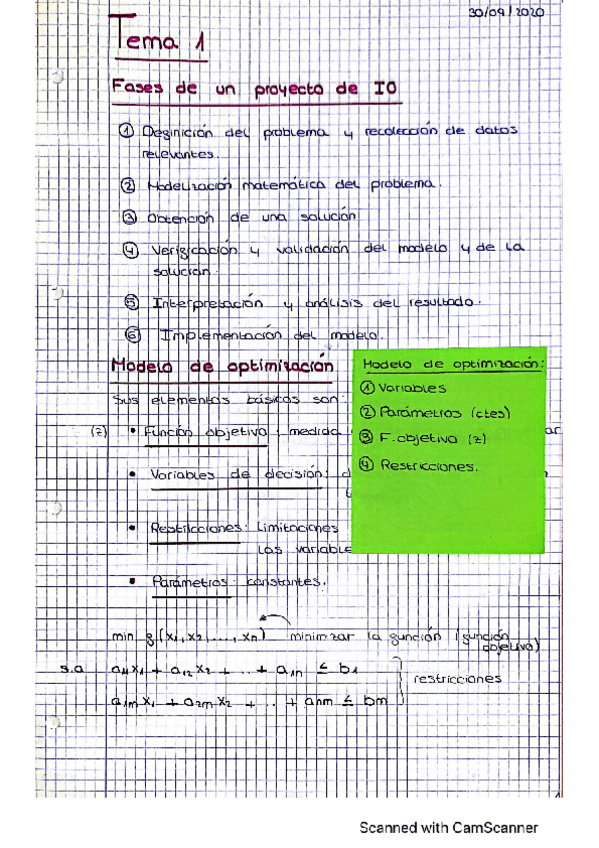 30/09/2020
Tema 1
Fases de un proyecto de IO
① Definición del problema y recolección de datos
relevantes.
② Modelización matemática del problema.
③ Obtención de una solución
④ Verificación y validación del modelo y de la
solución.
⑤ Interpretación y análisis del resultado.
⑥ Implementación del modelo.
Modelo de optimización
Sus elementos básicos son:
(z) • Función objetivo: medida ar
• Variables de decisión:
• Restricciones: Limitaciones
las variable
• Parámetros: constantes.
Modelo de optimización:
① Variables
② Parámetros (ctes)
③ F. objetivo (z)
④ Restricciones.
min f(x₁, x₂, ..., xn) minimizar la función (función
objetivo)
s.a a₁₁x₁ + a₁₂x₂ + ... + a₁n ≤ b₁
restricciones
a₁m x₁ + a₂m x₂ + ... + anm ≤ bm
Scanned with CamScanner